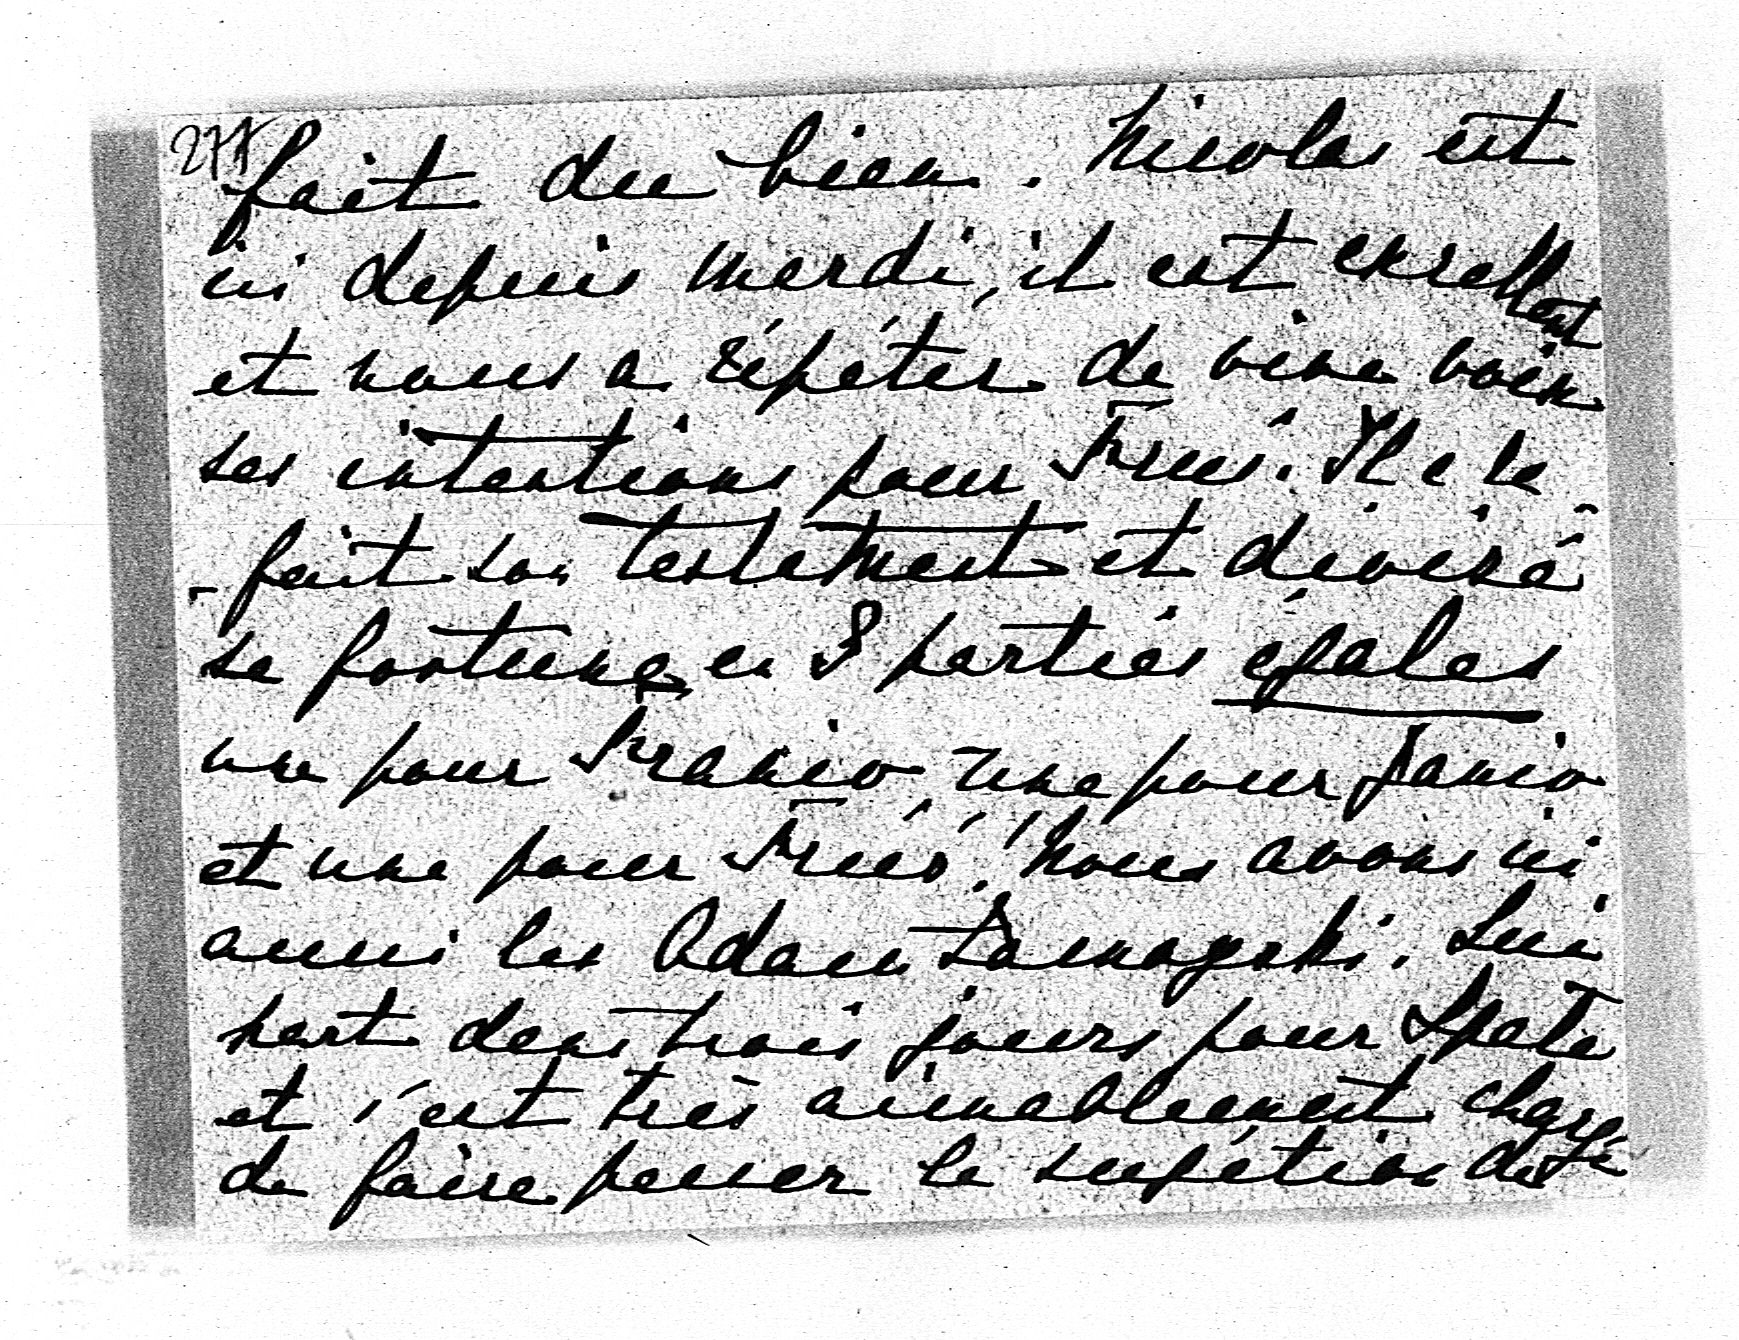 277
fait du bien. Nicolas est
ici depuis mardi, il est exsellent
et nous a répéter de vive voix
ses intentions pour Frusi. Il a
fait son testement et divisé
sa fortune en 3 parties égales
une pour Franio, une pour Janio
et une pour Frusó! Nous avons ici
aussi les Adam Zamoyski. Lui
part dans trois jours pour Spala
et s'est très aimablement chargé
de faire passer la supétion de